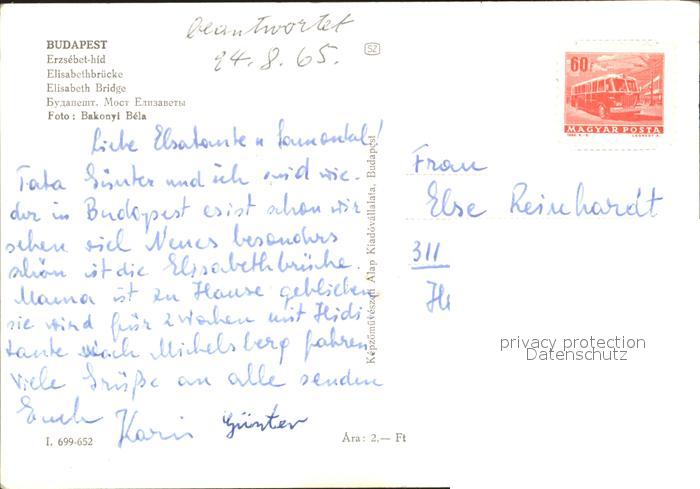 beantwortet
24.8.65.
SZ
BUDAPEST
Erzsébet-híd
Elisabethbrücke
Elisabeth Bridge
Будапешт. Мост Елизаветы
Foto: Bakonyi Béla
60f
MAGYAR POSTA
Liebe Elsatante u
Tata Günter und ich sind wie-
der in Budapest es ist schon wir
sehen viel Neues besonders
schön ist die Elisabethbrücke.
Mama ist zu Hause geblieben
sie wird für 2 Wochen mit Heidi
tante nach Michelsberg fahren
Viele Grüße an alle senden
Euch Karin Günter
Képzőművészeti Alap Kiadóvállalata, Budapest
Frau
Else Reinhardt
311
H
privacy protection
Datenschutz
I. 699-652
Ára: 2,— Ft